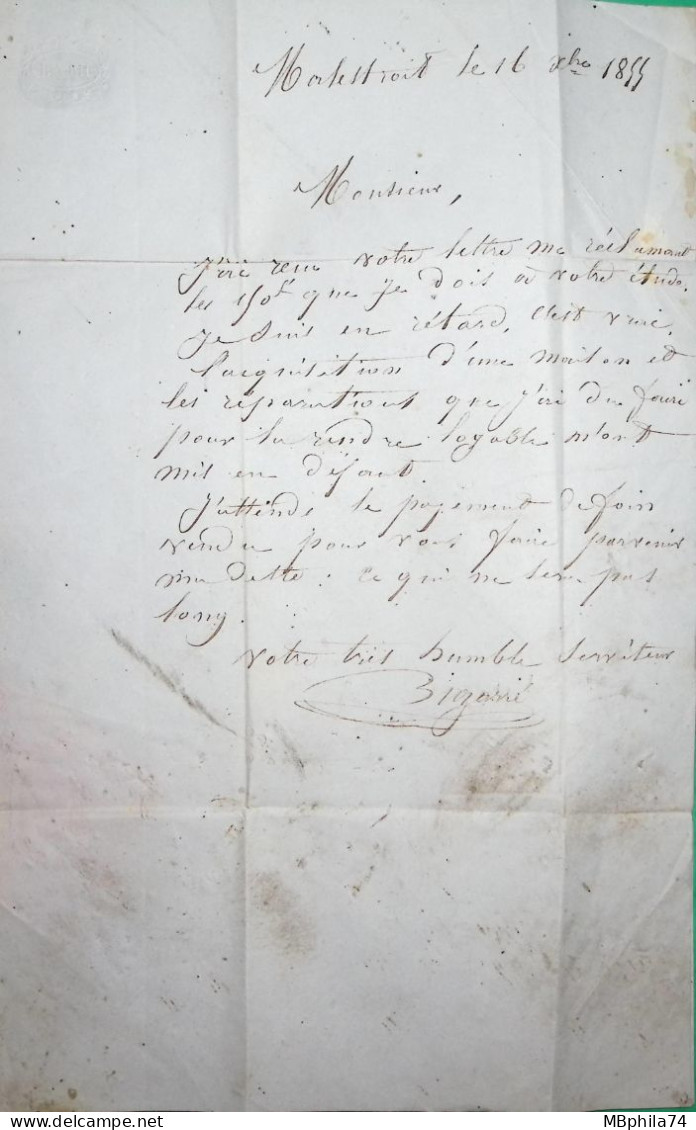 Malestroit le 16 xbre 1855
Monsieur,
J'ai reçu votre lettre me réclamant
les 150f que je dois à votre étude.
Je suis en rétard, c'est vrai,
l'acquisition d'une maison et
les réparations que j'ai du faire
pour la rendre logable m'ont
mis en défaut.
J'attends le payement de foin
vendu pour vous faire parvenir
ma dette : ce qui ne sera pas
long.
Votre très humble serviteur
MBphila74